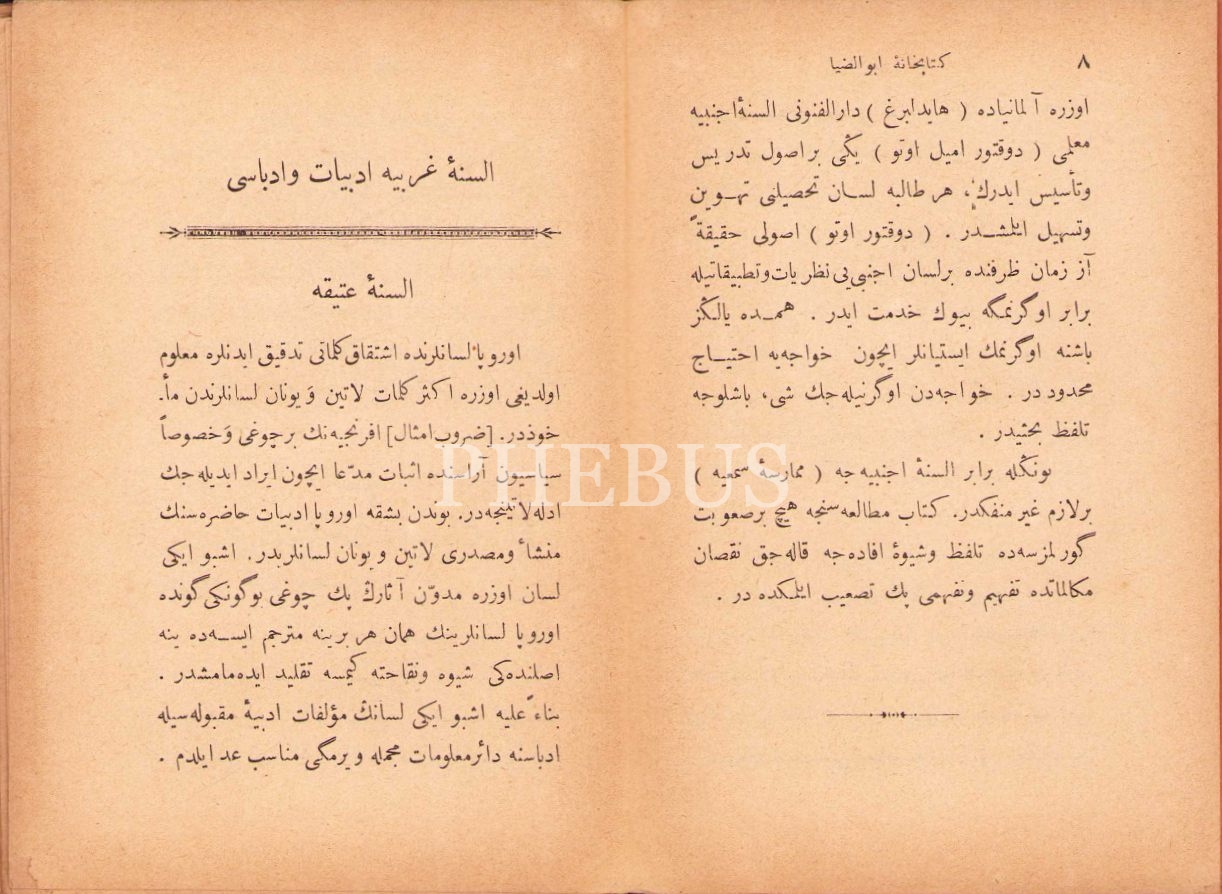 ٨
كتابخانۀ ابوالضیا
اوزره آلمانیاده ( هایدلبرغ ) دارالفنونی السنۀ اجنبیه
معلمی ( دوقتور امیل اوتو ) یڭی براصول تدریس
وتأسیس ایدرك، هر طالبه لسان تحصیلنی تهوین
وتسهیل ایلشدر . ( دوقتور اوتو ) اصولی حقیقةً
آز زمان ظرفنده برلسان اجنبی‌یی نظریات وتطبیقاتیله
برابر اوگرنمگه بیوك خدمت ایدر . همده یالڭز
باشنه اوگرنمك ایستیانلر ایچون خواجه‌یه احتیاج
محدود در . خواجه‌دن اوگرنیله‌جك شی، باشلوجه
تلفظ بحثیدر .
بونڭله برابر السنۀ اجنبیه‌جه ( ممارسۀ سمعیه )
برلازم غیر منفكدر. كتاب مطالعه‌سنجه هیچ برصعوبت
گورلمزسه‌ده تلفظ وشیوۀ افاده‌جه قاله‌جق نقصان
مكالماتده تفهیم وتفهمی پك تصعیب ایلمكده در .
السنۀ غربیه ادبیات وادباسی
السنۀ عتیقه
اوروپا لسانلرنده اشتقاق كلماتی تدقیق ایدنلره معلوم
اولدیغی اوزره اكثر كلمات لاتین وَ یونان لسانلرندن مأ.
خوذدر. [ضروب امثال] افرنجیه‌نك برچوغی وَخصوصاً
سیاسیون آراسنده اثبات مدّعا ایچون ایراد ایدیله‌جك
ادله لاتینجه‌در. بوندن بشقه اوروپا ادبیات حاضره‌سنك
منشأ ومصدری لاتین ویونان لسانلریدر. اشبو ایكی
لسان اوزره مدوّن آثارڭ پك چوغی بوگونكی گونده
اوروپا لسانلرینك همان هر برینه مترجم ایسه‌ده ینه
اصلنده‌كی شیوه ونقاحته كیمسه تقلید ایده‌مامشدر .
بناءً علیه اشبو ایكی لسانڭ مؤلفات ادبیۀ مقبوله‌سیله
ادباسنه دائر معلومات مجمله ویرمگی مناسب عد ایلدم .
PHEBUS